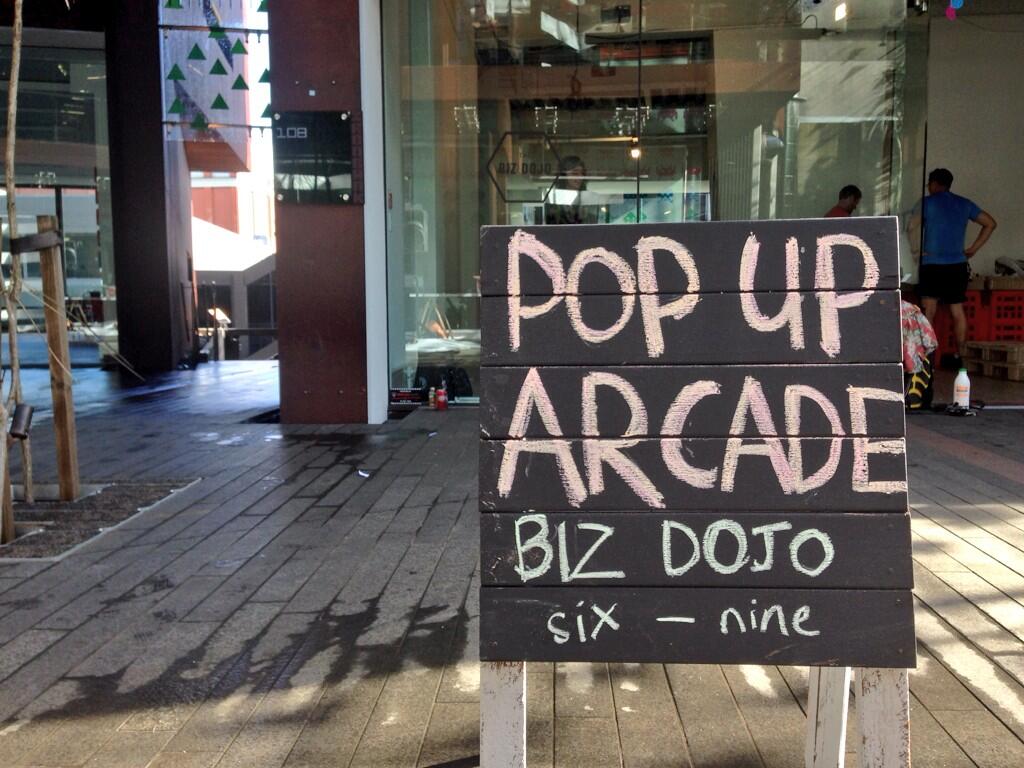 108
BIZ DOJO
POP UP
ARCADE
BIZ DOJO
six – nine